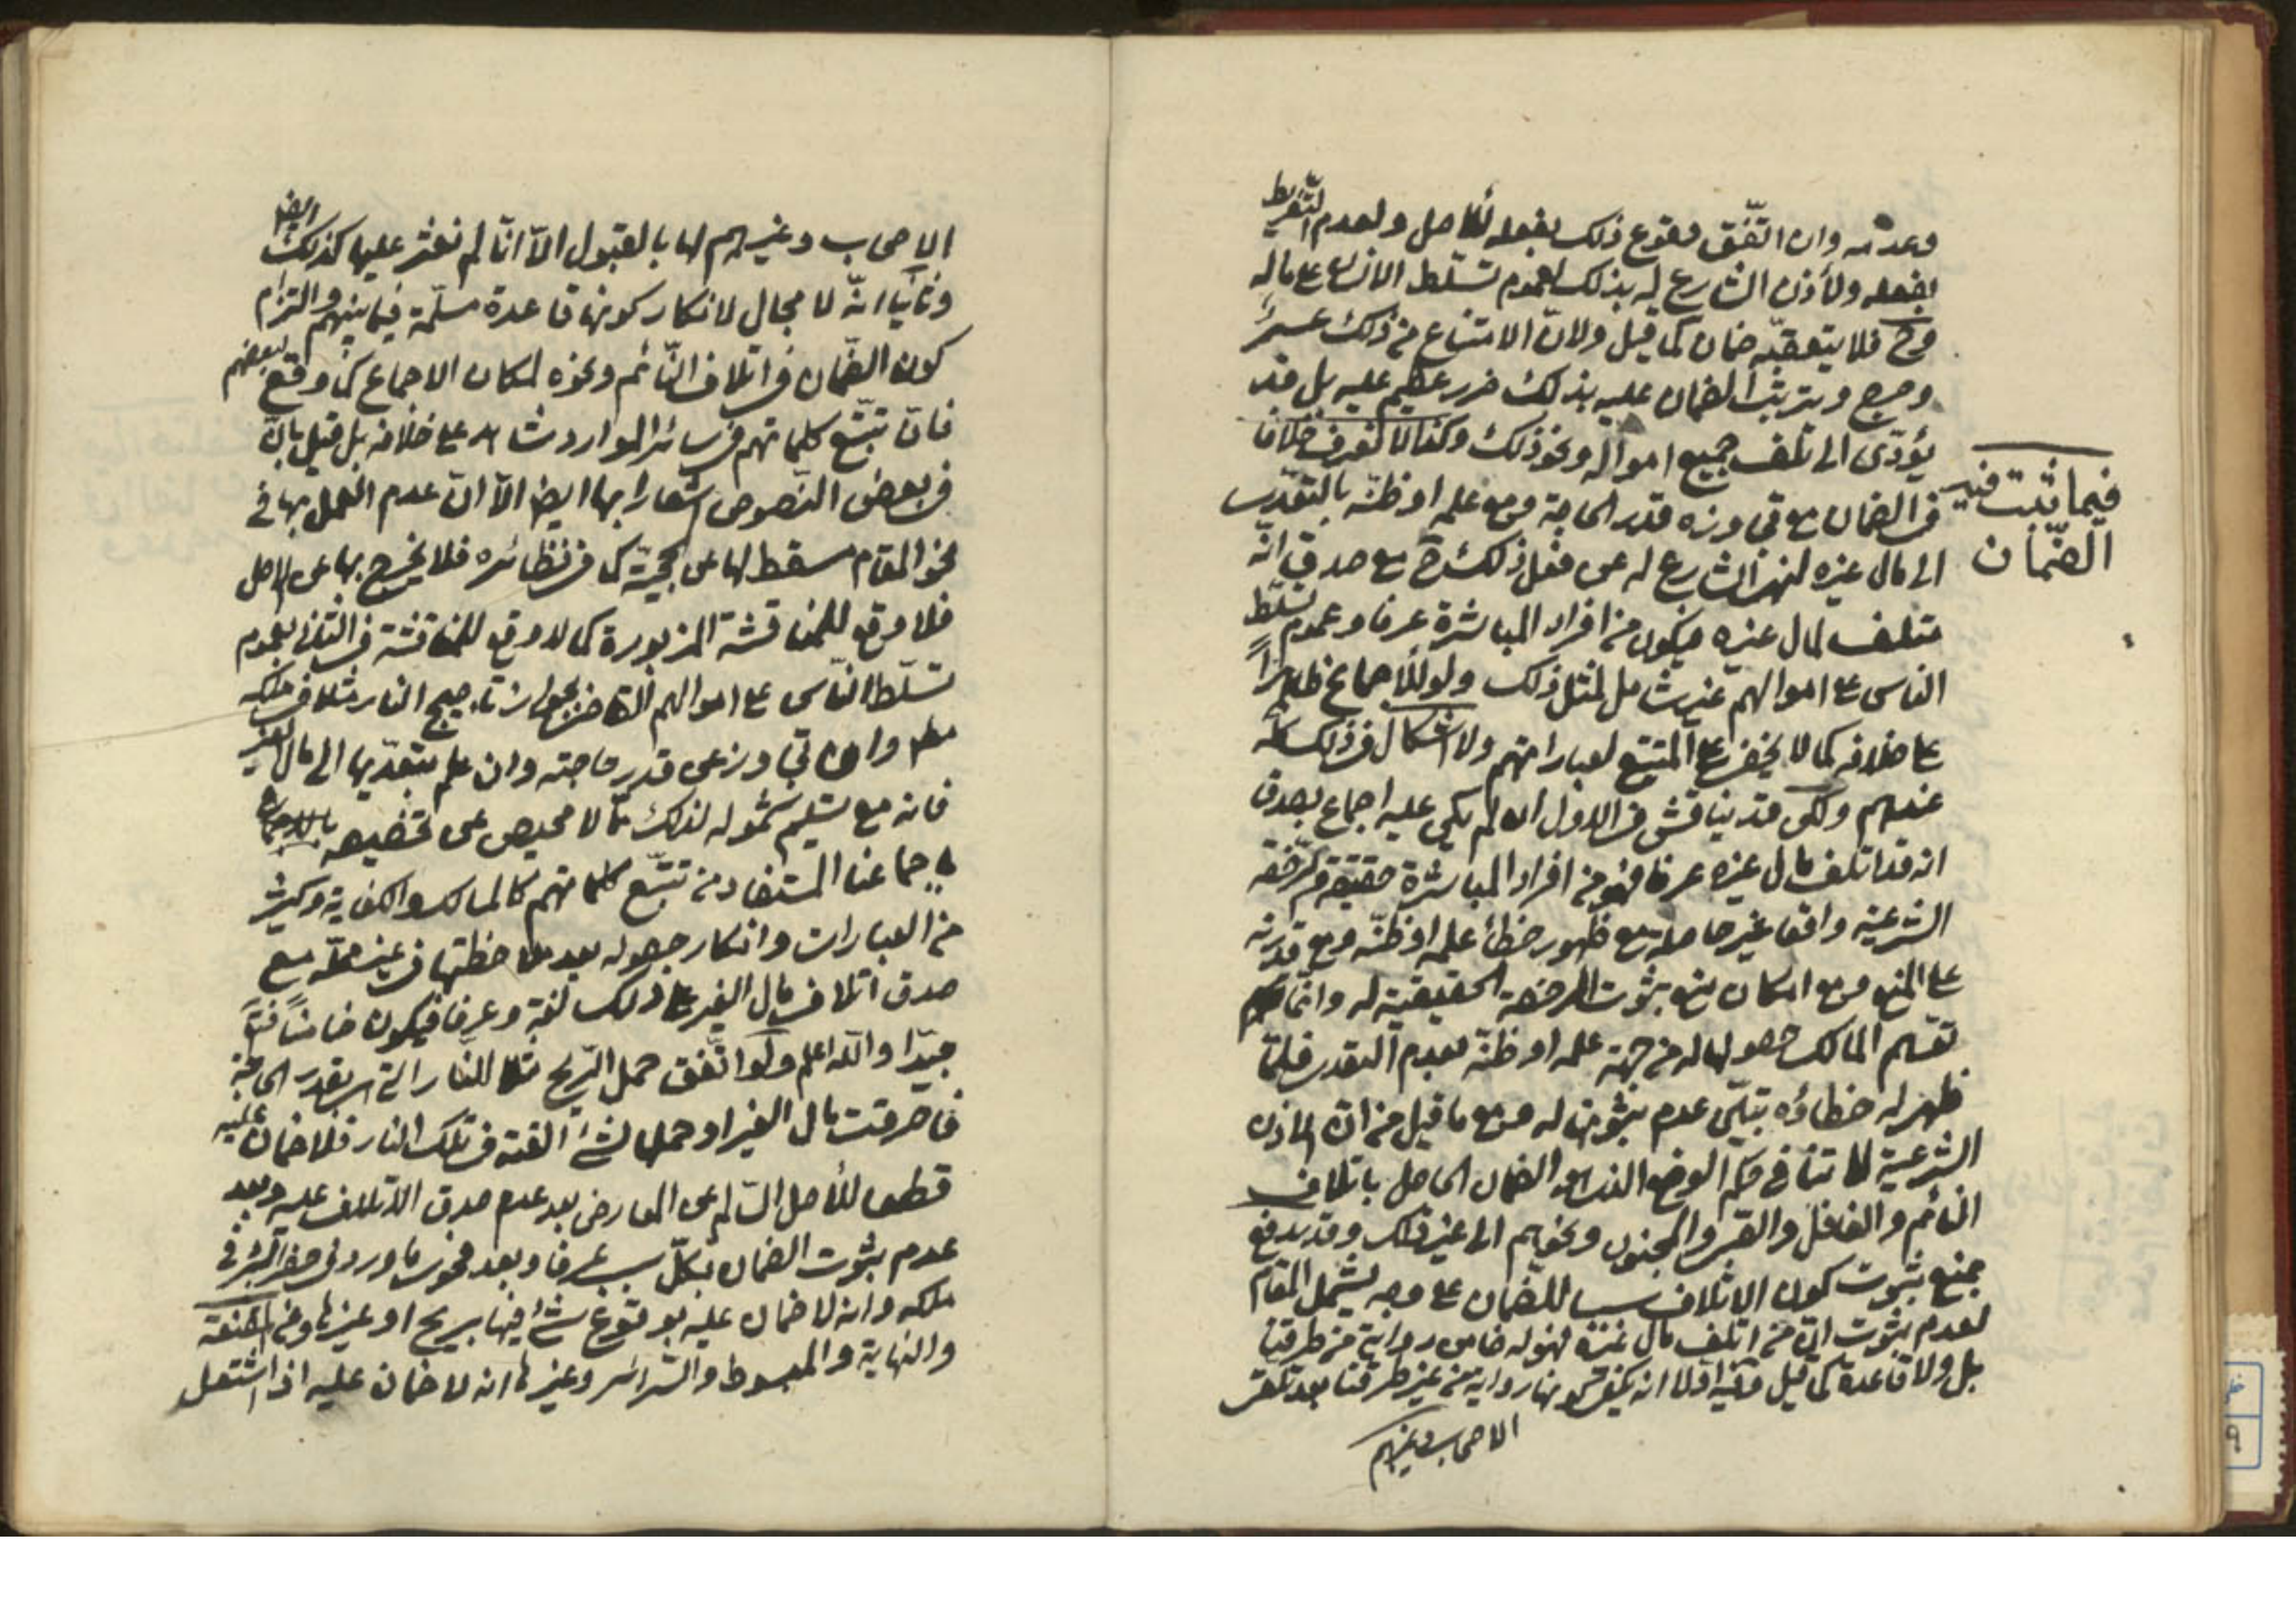 وعدمه وان اتّفق وقوع ذلك بفعله للاصل ولعدم التفريط
بفعله ولأذن الشارع له بذلك لعموم تسلّط الانسان على ماله
وح فلا يتعقبّه ضمان كما قيل ولانّ الامتناع من ذلك عسر
وحرج وترتب الضمان عليه بذلك ضرر عظيم عليه بل قد
يؤدّى الى تلف جميع امواله ونحو ذلك وكذا لا نعرف خلافا
فى الضمان مع تجاوزه قدر الحاجة ومع علمه او ظنّه بالتعدّى
فيما ثبت فيه
الضمّان
الى مال غيره لنهى الشارع له عن فعل ذلك ح مع صدق انّه
متلف لمال غيره فيكون من افراد المباشرة عرفا وعموم تسلّط
الناس على اموالهم غير شامل لمثل ذلك ولو للاجماع ظاهراً
على خلافه كما لا يخفى على المتتبّع لعباراتهم ولا اشكال فى ذلك كلّه
عندهم ولكن قد يناقش فى الاول ان لم يكن عليه اجماع بصدق
انه قد اتلف مال غيره عرفا فهو من افراد المباشرة حقيقة والرخصة
الشرعيّة واقعا غير حاصلة مع ظهور خطأ علمه او ظنّه ومع قدرته
على المنع ومع امكان منع ثبوت الرخصة الحقيقية له وانّما
توهّم المالك حصولها له من جهة علمه او ظنّه بعدم التعدى فلمّا
ظهر له خطاؤه تبيّن عدم ثبوتها له ومع ما قيل من انّ الاذن
الشرعية لا تنافى حكم الوضع الذى هو الضمان الحاصل باتلاف
النائم والغافل والصّبى والمجنون ونحوهم الى غير ذلك وقد يدفع
بمنع ثبوت كون الاتلاف سببا للضمان على وجه يشمل المقام
لعدم ثبوت انّ من اتلف مال غيره فهو له ضامن رواية من طرقنا
بل ولا قاعدة كما قيل وفيه اوّلا انه يكفى كونها رواية من غير طرقنا بعد تلقى
الاصحاب وغيرهم
الاصحاب وغيرهم لها بالقبول الّا انّا لم نعثر عليها كذلك ايضا
وثانيا انّه لا مجال لانكار كونها قاعدة مسلّمة فيما بينهم والتزام
كون الضّمان فى اتلاف النّائم ونحوه لمكان الاجماع كما وقع لبعضهم
فانّ تتبّع كلماتهم فى سائر الموارد شاهد على خلافه بل قيل بانّ
فى بعض النّصوص اشعارا بها ايضا الّا انّ عدم العمل بها فى
نحو المقام مسقط لها عن الحجيّة كما فى نظائره فلا يخرج بها عن الاصل
فلا وقع للمناقشة المزبورة كما لا وقع للمناقشة فى الثانى بعموم
تسلّط النّاس على اموالهم القاضى بجواز تاجيج النار مثلا فى ملكه
مطلقا وان تجاوز عن قدر حاجته وان علم بتعدّيها الى مال الغير
فانه مع تسليم شموله لذلك ممّا لا محيص عن تخصيصه بالاجماع
المستفاد من تتبّع كلماتهم كالمسالك والكفاية وكثير
من العبارات وانكار حصوله بعد ملاحظتها فى غير محلّه مع
صدق اتلاف مال الغير على ذلك لغة وعرفا فيكون ضامنا
جيّدا والله اعلم ولو اتّفق حمل الرّيح مثلا للنار التى بقدر الحاجة
فاحرقت مال الغير او حملها لشئ القته فى تلك النار فلا ضمان عليه
قطعا للأصل السّالم عن المعارض بعد عدم صدق الاتلاف عليه وبعد
عدم ثبوت الضمان بكلّ سبب عرفا وبعد فحوى ما ورد فى حفر البئر فى
ملكه وانه لا ضمان عليه بوقوع شئ فيها بريح او غيرها وفى المقنعة
والنهاية والمبسوط والسّرائر وغيرها انه لا ضمان عليه اذا اشتعل